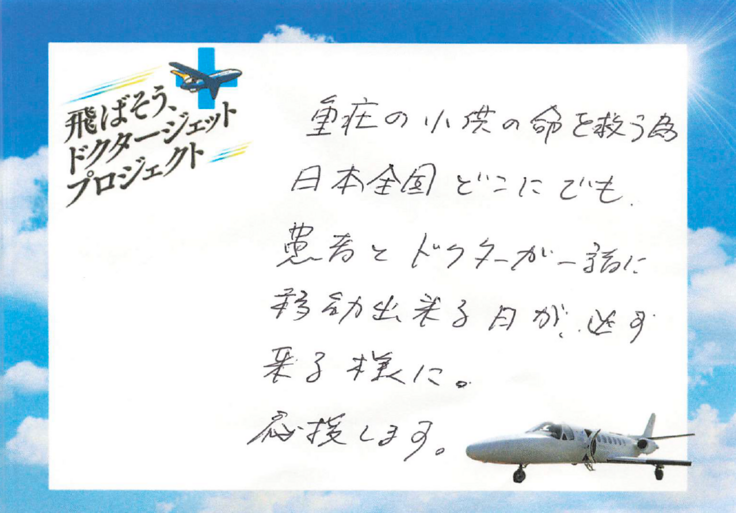 飛ばそう、
ドクタージェット
プロジェクト
重症の小供の命を救う為
日本全国どこにでも、
患者とドクターが一諸に
移動出来る日が、必ず
来る様に。
応援します。